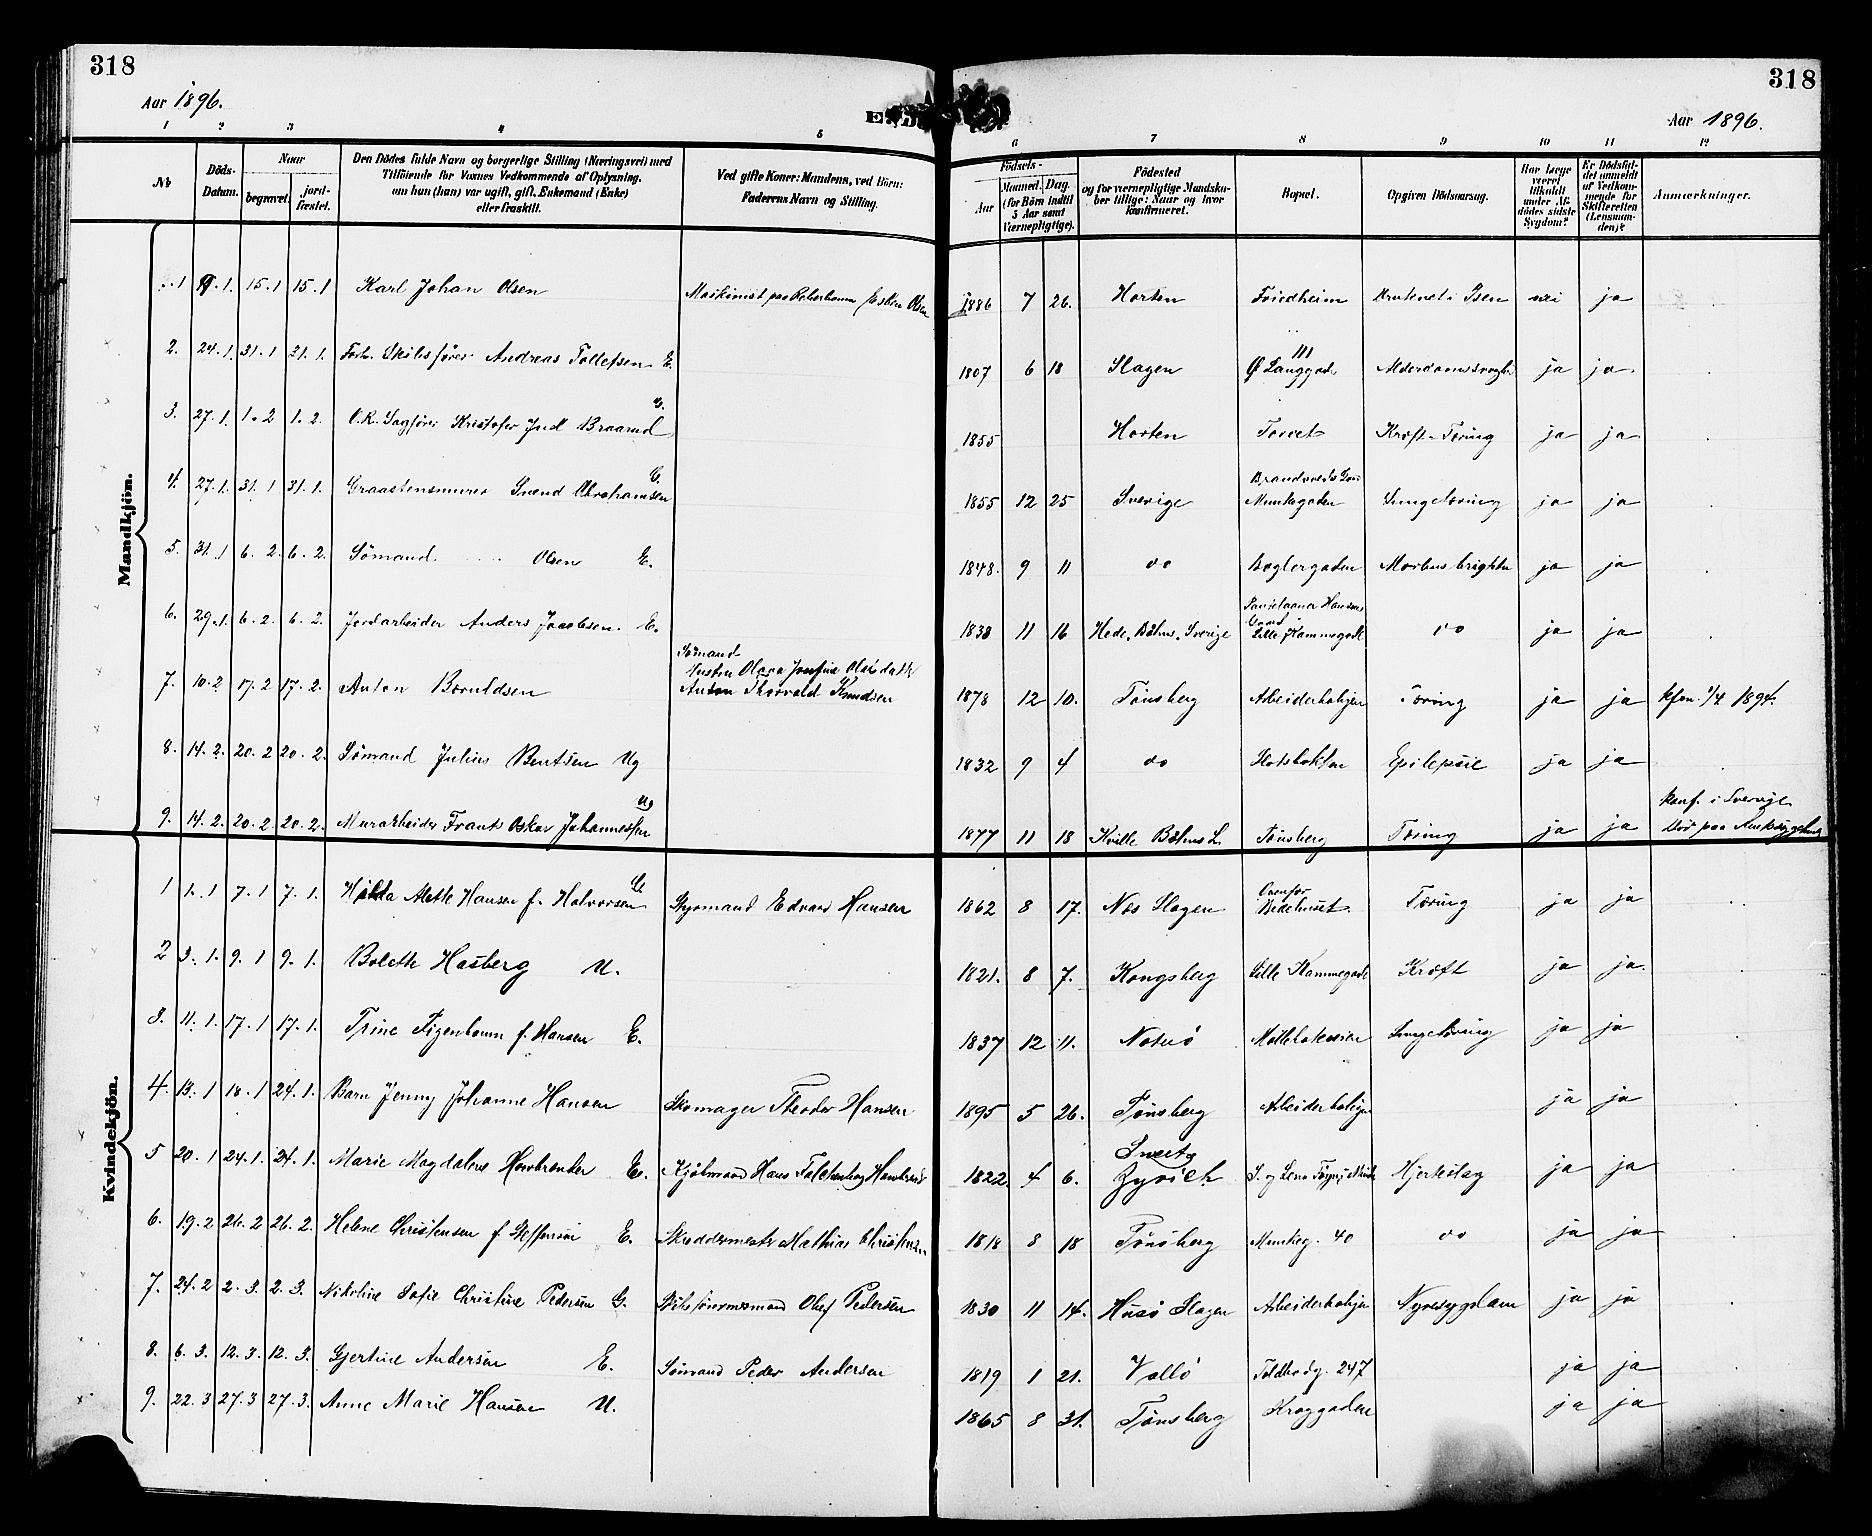 318
318
Aar 1896.
Aar 1896.
1 2 3 4 5 6 7 8 9 10 11 12
No
Döds-Datum.
Naar begravet. jordfæstet.
Den Dödes fulde Navn og borgerlige Stilling (Næringsvei) med Tilföiende for Voxnes Vedkommende af Oplysning, om hun (han) var ugift, gift, Enkemand (Enke) eller fraskilt.
Ved gifte Koner: Mandens, ved Börn: Faderens Navn og Stilling.
Födsels-
Aar
Maaned. Dag. (for Börn indtil 5 Aar samt Værnepligtige).
Födested og for værnepligtige Mandskaber tillige: Naar og hvor konfirmeret.
Bopæl.
Opgiven Dödsaarsag.
Har Læge været tilkaldt under Afdödes sidste Sygdom?
Er Dödsfaldet anmeldt af Vedkommende for Skifteretten (Lensmanden)?
Anmærkninger.
Mandkjön.
1 9.1. 15.1 15.1 Karl Johan Olsen Maskinist paa Esken Olsen 1886 7 26. Horten Friedheim Druknet i Isen nei ja
2. 24.1. 31.1 31.1. Forh. Skibsfører Andreas Tollefsen E. 1807 6 18 Slagen Ø Langgade 111 ja ja.
3. 27.1. 1.2 1.2. O.R. Sagfører Kristofer Braarud G. 1855 Horten Torvet Kræft-Tæring ja ja
4. 27.1. 31.1 31.1. Graastensmurer Svend Abrahamsen G. 1855 12 25 Sverige Munkegaden Lungetæring ja ja
5. 31.1 6.2. 6.2. Sømand Olsen E. 1848. 9 11 do Baglergaden Morbus brightii ja ja
6. 29.1. 6.2. 6.2. Jordarbeider Anders Jacobsen. E. 1830 11 16 Hede, Båhus, Sverige Hansens Gaard Lille Kammegade do ja ja
7. 10.2 17.2 17.2. Anton Knudsen Sømand Anton Thorvald Knudsen 1878 12 10. Tønsberg Arbeiderboliger Tæring ja ja kfm. 1/4 1894.
8. 14.2. 20.2 20.2. Sømand Julius Berntsen Ug 1832 9 4 do Epilepsie ja ja
9. 14.2. 20.2 20.2. Murarbeider Frants Oskar Johannessen Ug 1877 11 18 Kville Båhus L. Tønsberg Tæring ja ja konf. i Sverige. Død paa Amtssygehus
Kvindekjön.
1 1.1 7.1 7.1. Hilda Alette Hansen f. Halvorsen G. Styrmand Edvard Hansen 1862 8 17. Næs Slagen Ovenfor Bedehuset. Tæring ja ja
2 3.1. 9.1 9.1. Bolette Hasberg U. 1821. 8 7. Kongsberg Lille Kammegade Kræft ja ja.
3. 11.1. 17.1 17.1. Trine Figenbaum f. Hansen E. 1837 12 11. Nøtterø Møllebakveien Lungetæring ja ja
4. 13.1 18.1 24.1. Barn Jenny Johanne Hansen Skomager Theodor Hansen 1895 5 26. Tønsberg Arbeiderboliger ja ja
5 20.1 24.1. 24.1. Marie Magdalene E. Kjøbmand Hans Falchenberg 1822. 4 6. Sveits Zyrich Hjerteslag ja ja
6. 19.2 26.2 26.2. Helene Christensen f. Steffensen E. Skreddermester Mathias Christensen 1818 8 18 Tønsberg Munkeg. 40 do ja ja
7. 24.2 2.3. 2.3. Nikoline Sofie Christine Pedersen G. Skibstømmermand Oluf Pedersen 1830 11 14. Husø Slagen Arbeiderboliger Nyresygdom ja ja
8. 6.3. 12.3. 12.3. Gjertine Andersen E. Sømand Peder Andersen 1819 1 21. Vallø Toldbodg. 247 ja ja
9. 22.3 27.3 27.3. Anne Marie Hansen U. 1865 8 31. Tønsberg Kroggaden ja ja